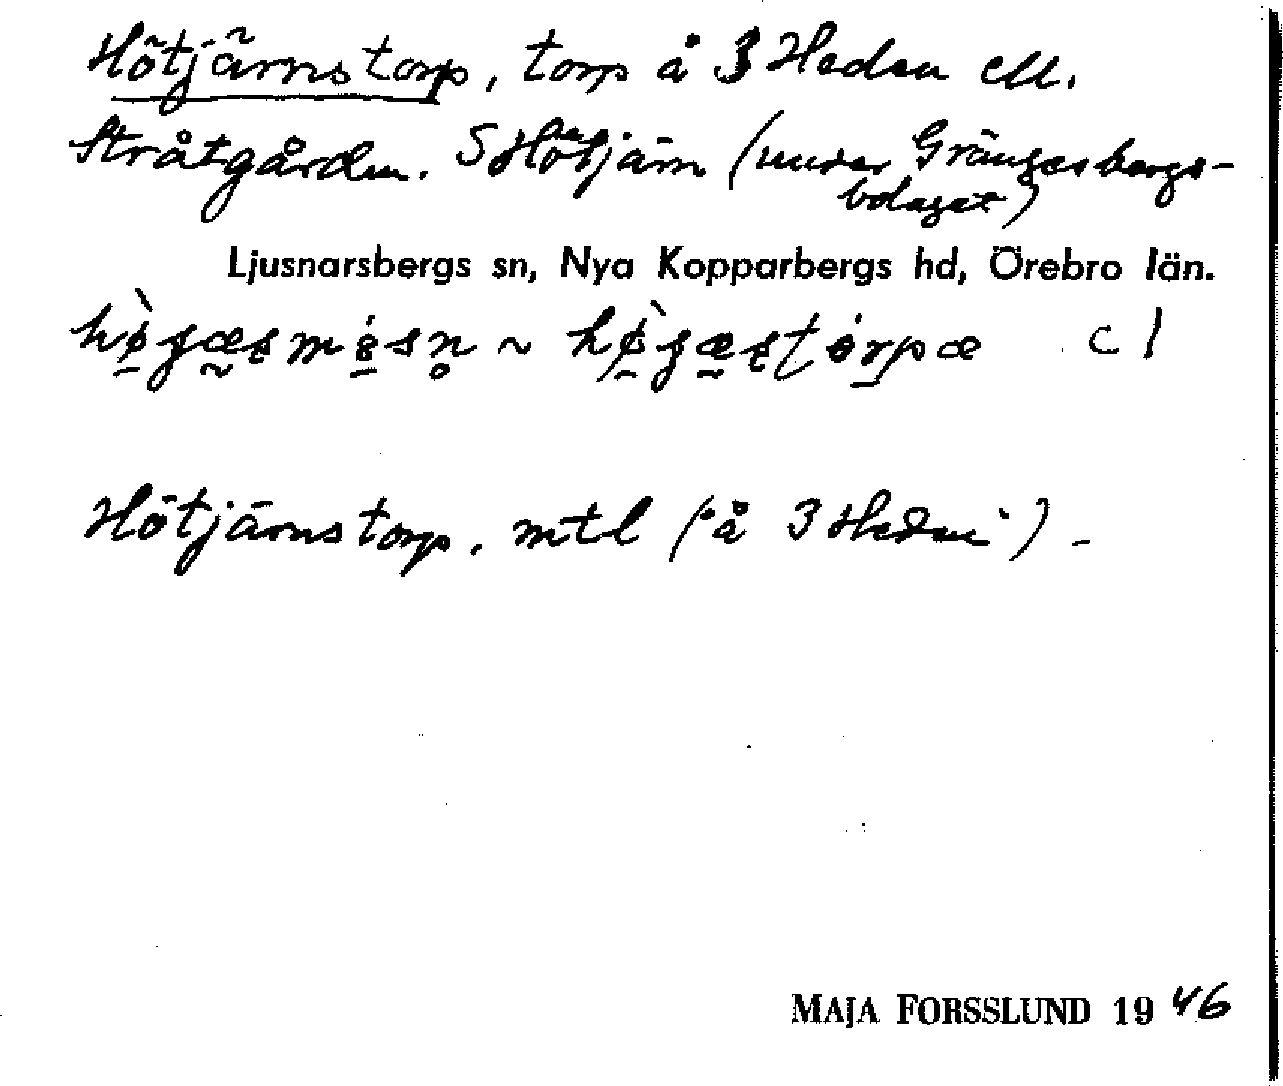 Hötjärnstorp, torp å 3 Heden ell.
Stråtgården. S Hötjärn (under Grängesbergs-
bolaget)
Ljusnarsbergs sn, Nya Kopparbergs hd, Örebro län.
~ c 1
Hötjärnstorp, mtl ("å 3 Heden") -
MAJA FORSSLUND 1946